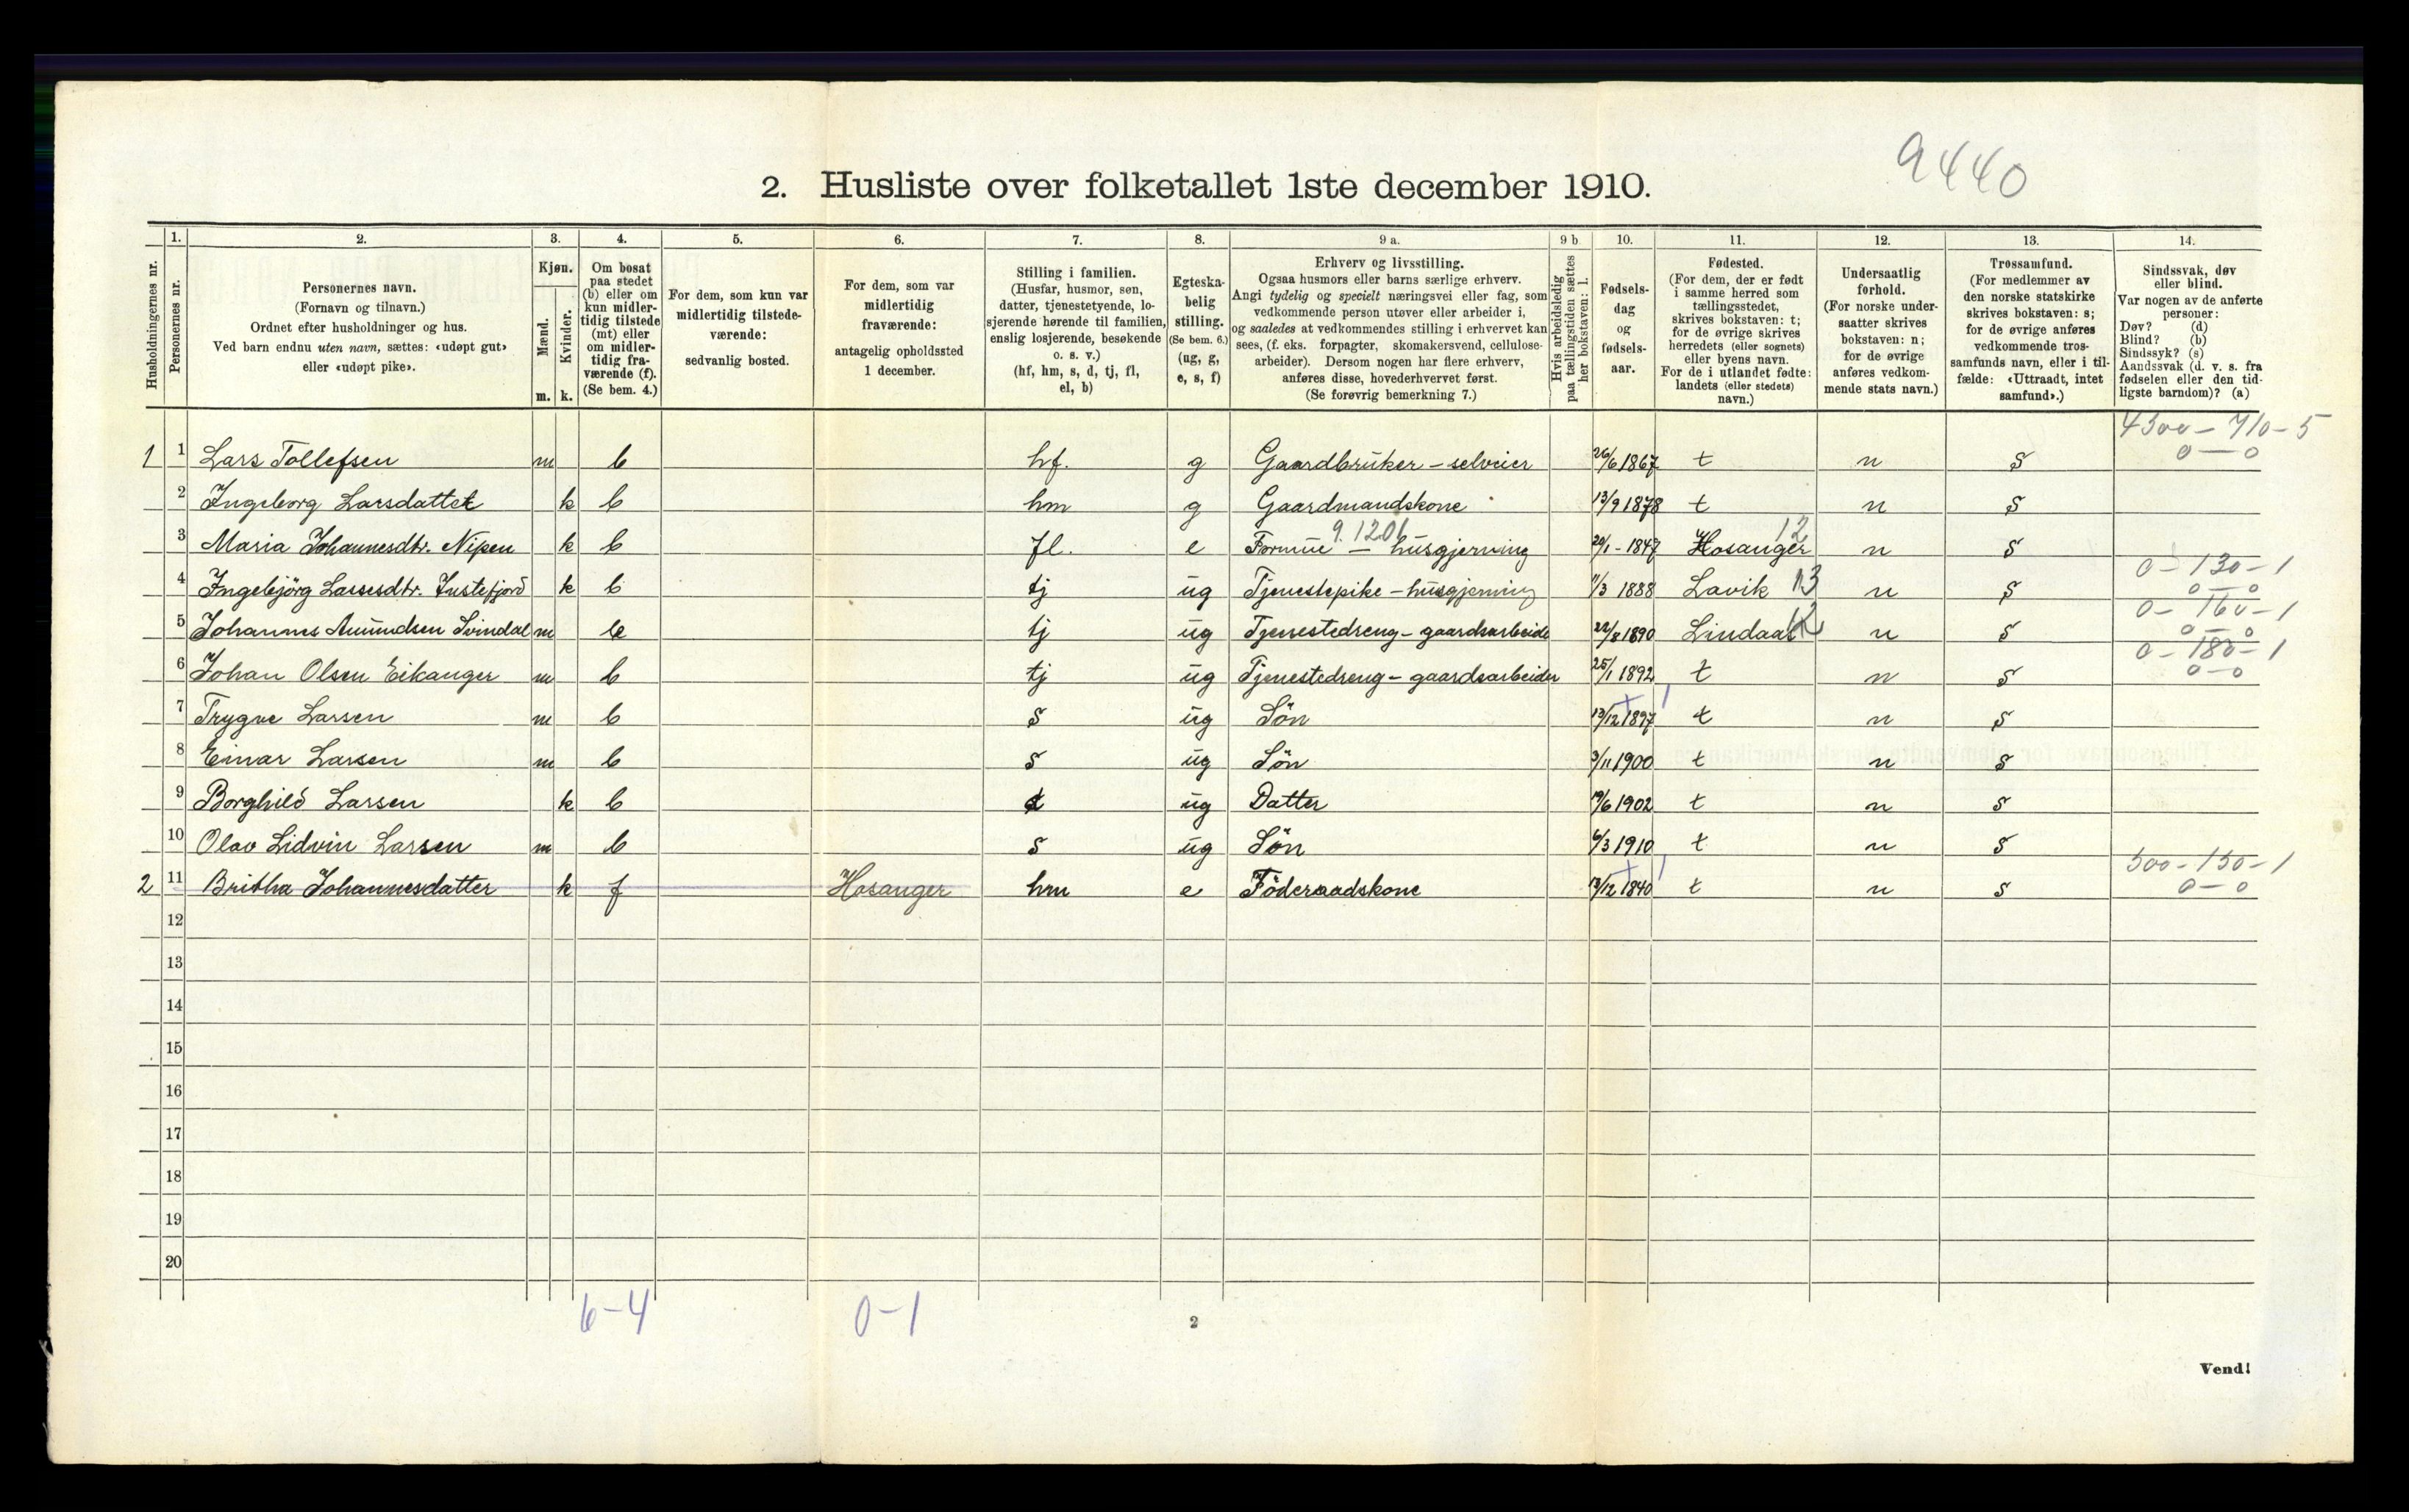 9440
2. Husliste over folketallet 1ste december 1910.
1. 2. 3. 4. 5. 6. 7. 8. 9 a. 9 b. 10. 11. 12. 13. 14.
Husholdningernes nr.
Personernes nr.
Personernes navn.
(Fornavn og tilnavn.)
Ordnet efter husholdninger og hus.
Ved barn endnu uten navn, sættes: «udøpt gut»
eller «udøpt pike».
Kjøn.
Mænd.
Kvinder.
m. k.
Om bosat
paa stedet
(b) eller om
kun midler-
tidig tilstede
(mt) eller
om midler-
tidig fra-
værende (f).
(Se bem. 4.)
For dem, som kun var
midlertidig tilstede-
værende:
sedvanlig bosted.
For dem, som var
midlertidig
fraværende:
antagelig opholdssted
1 december.
Stilling i familien.
(Husfar, husmor, søn,
datter, tjenestetyende, lo-
sjerende hørende til familien,
enslig losjerende, besøkende
o. s. v.)
(hf, hm, s, d, tj, fl,
el, b)
Egteska-
belig
stilling.
(Se bem. 6.)
(ug, g,
e, s, f)
Erhverv og livsstilling.
Ogsaa husmors eller barns særlige erhverv.
Angi tydelig og specielt næringsvei eller fag, som
vedkommende person utøver eller arbeider i,
og saaledes at vedkommendes stilling i erhvervet kan
sees, (f. eks. forpagter, skomakersvend, cellulose-
arbeider). Dersom nogen har flere erhverv,
anføres disse, hovederhvervet først.
(Se forøvrig bemerkning 7.)
Hvis arbeidsledig
paa tællingstiden sættes
her bokstaven: l.
Fødsels-
dag
og
fødsels-
aar.
Fødested.
(For dem, der er født
i samme herred som
tællingsstedet,
skrives bokstaven: t;
for de øvrige skrives
herredets (eller sognets)
eller byens navn.
For de i utlandet fødte:
landets (eller stedets)
navn.)
Undersaatlig
forhold.
(For norske under-
saatter skrives
bokstaven: n;
for de øvrige
anføres vedkom-
mende stats navn.)
Trossamfund.
(For medlemmer av
den norske statskirke
skrives bokstaven: s;
for de øvrige anføres
vedkommende tros-
samfunds navn, eller i til-
fælde: «Uttraadt, intet
samfund».)
Sindssvak, døv
eller blind.
Var nogen av de anførte
personer:
Døv? (d)
Blind? (b)
Sindssyk? (s)
Aandssvak (d. v. s. fra
fødselen eller den tid-
ligste barndom)? (a)
4300 - 710 - 5
1 1 Lars Tollefsen m b hf. g Gaardbruker - selveier 26/6 1867 t n s 0 — 0
2 Ingeborg Larsdatter k b hm g Gaardmandskone 13/9 1878 t n s
9.1201 12
3 Maria Johannesdtr. Nipen k b fl. e Formue - husgjerning 20/1 - 1847 Hosanger n s
0 - 130 - 1
4 Ingebjörg Lassesdtr. Instefjord k b tj ug Tjenestepike - husgjerning 11/3 1888 Lavik 13 n s 0 — 0
0 - 160 - 1
5 Johannes Amundsen Svindal m b tj ug Tjenestedreng - gaardsarbeide 22/8 1890 Lindaas 12 n s 0 — 0
0 - 180 - 1
6 Johan Olsen Eikanger m b tj ug Tjenestedreng - gaardsarbeider 25/1 1892 t n s 0 - 0
7 Trygve Larsen m b s ug Sön 13/12 1897 t n s
8 Einar Larsen m b s ug Sön 3/11 1900 t n s
9 Borghild Larsen k b d ug Datter 19/6 1902 t n s
10 Olav Lidvin Larsen m b s ug Sön 6/3 1910 t n s
500 - 150 - 1
2 11 Britha Johannesdatter k f Hosanger hm e Föderaadskone 13/12 1840 t n s 0 - 0
12
13
14
15
16
17
18
19
20
6 - 4 0 - 1
2
Vend!